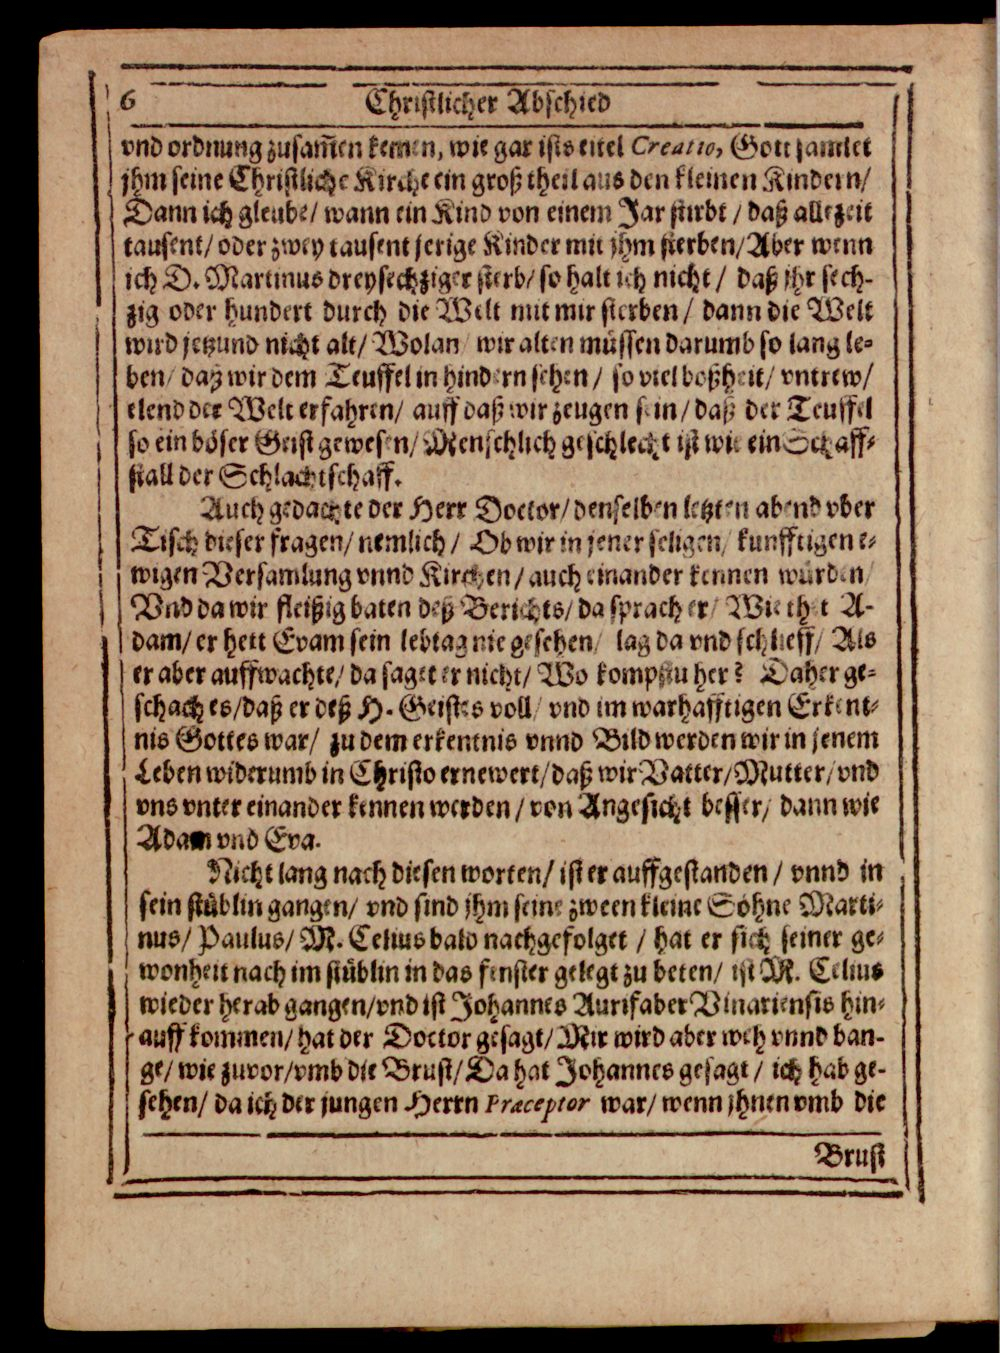 6 Christlicher Abschied
vnd ordnung zusam̃en kemen, wie gar ists eitel Creatio, Gott samlet
jhm seine Christliche Kirche ein groß theil aus den kleinen Kindern/
Dann ich gleube/ wann ein Kind von einem Jar stirbt / daß allezeit
tausent/ oder zwey tausent jerige Kinder mit jhm sterben/ Aber wenn
ich D. Martinus dreysechziger sterb/ so halt ich nicht / daß jhr sech-
zig oder hundert durch die Welt mit mir sterben / dann die Welt
wird jetzund nicht alt/ Wolan/ wir alten müssen darumb so lang le-
ben/ daß wir dem Teuffel in hindern sehen / so viel boßheit/ vntrew/
elend der Welt erfahren/ auff daß wir zeugen sein/ daß der Teuffel
so ein böser Geist gewesen/ Menschlich geschlecht ist wie ein Schaff-
stall der Schlachtschaff.
Auch gedachte der Herr Doctor/ denselben letzten abend vber
Tisch dieser fragen/ nemlich / Ob wir in jener seligen/ kunfftigen e-
wigen Versamlung vnnd Kirchen / auch einander kennen würden/
Vnd da wir fleißig baten deß Berichts/ da sprach er/ Wie thet A-
dam/ er hett Evam sein lebtag nie gesehen/ lag da vnd schlieff/ Als
er aber auffwachte/ da saget er nicht/ Wo kompstu her? Daher ge-
schach es/ daß er deß H. Geistes voll/ vnd im warhafftigen Erkent-
nis Gottes war/ zu dem erkentnis vnnd Bild werden wir in jenem
Leben widerumb in Christo ernewert/ daß wir Vatter/ Mutter/ vnd
vns vnter einander kennen werden / von Angesicht besser/ dann wie
Adam vnd Eva.
Nicht lang nach diesen worten/ ist er auffgestanden / vnnd in
sein stüblin gangen/ vnd sind jhm seine zween kleine Söhne Marti-
nus/ Paulus/ M. Celius bald nachgefolget / hat er sich seiner ge-
wonheit nach im stüblin in das fenster gelegt zu beten/ ist M. Celius
wieder herab gangen/ vnd ist Johannes Aurifaber Vinariensis hin-
auff kommen/ hat der Doctor gesagt/ Mir wird aber weh vnnd ban-
ge/ wie zuvor/ vmb die Brust/ Da hat Johannes gesagt / ich hab ge-
sehen/ da ich der jungen Herrn Præceptor war/ wenn jhnen vmb die
Brust